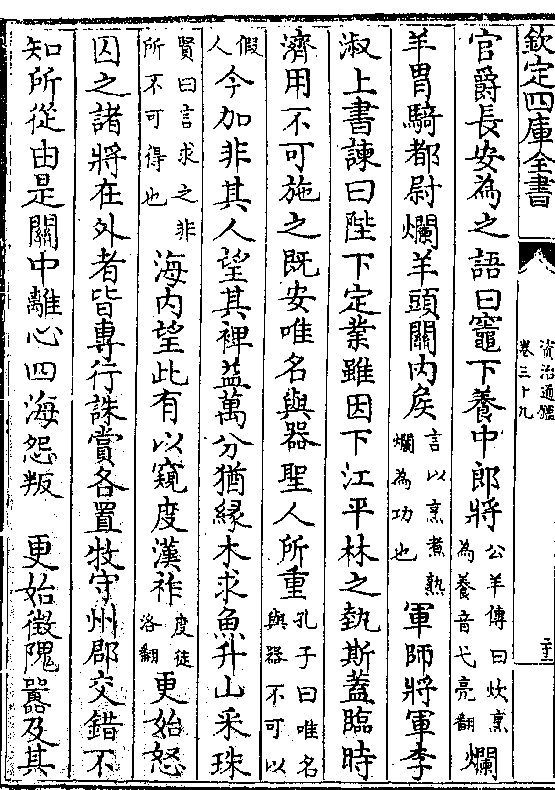 欽定四庫全書
資治通鑑
卷三十九
官爵長安為之語曰竈下養中郎將公羊傳曰炊烹為養音弋亮翻爛
羊胃騎都尉爛羊頭關內矦言以烹煮熟爛為功也軍師將軍李
淑上書諫曰陛下定業雖因下江平林之埶斯蓋臨時
濟用不可施之既安唯名與器聖人所重孔子曰唯名與器不可以
假人今加非其人望其裨益萬分猶緣木求魚升山采珠
賢曰言求之非所不可得也海內望此有以窺度漢祚度徒洛翻更始怒
囚之諸將在外者皆專行誅賞各置牧守州郡交錯不
知所從由是關中離心四海怨叛　更始徵隗囂及其